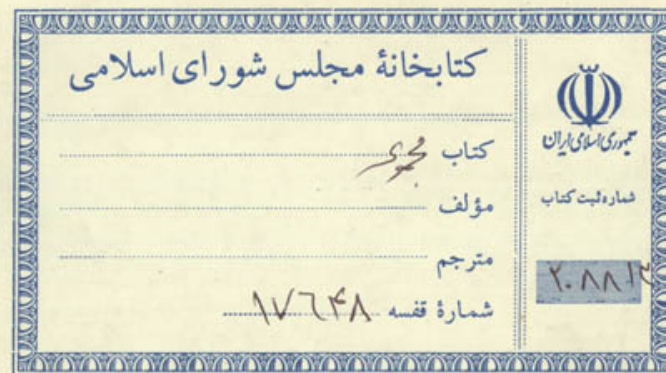 کتابخانهٔ مجلس شورای اسلامی
کتاب مجموعه
مؤلف
مترجم
شمارهٔ قفسه ۱۷۶۴۸
جمهوری اسلامی ایران
شماره ثبت کتاب
۲۰۸۸۱۳